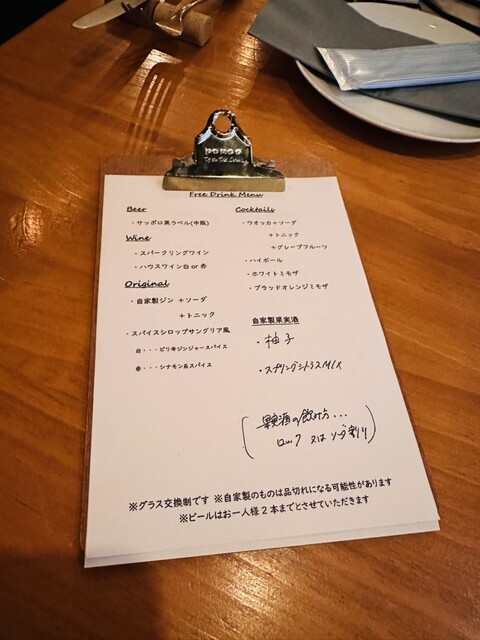 Free Drink Menu
Beer
・サッポロ黒ラベル(中瓶)
Wine
・スパークリングワイン
・ハウスワイン白 or 赤
Original
・自家製ジン +ソーダ
+トニック
・スパイスシロップサングリア風
白・・・ピリ辛ジンジャースパイス
赤・・・シナモン系スパイス
Cocktails
・ウオッカ+ソーダ
+トニック
+グレープフルーツ
・ハイボール
・ホワイトミモザ
・ブラッドオレンジミモザ
自家製果実酒
・柚子
・スプリングシトラスMIX
(果実酒の飲み方...
ロック 又は ソーダ割り)
※グラス交換制です ※自家製のものは品切れになる可能性があります
※ビールはお一人様2本までとさせていただきます